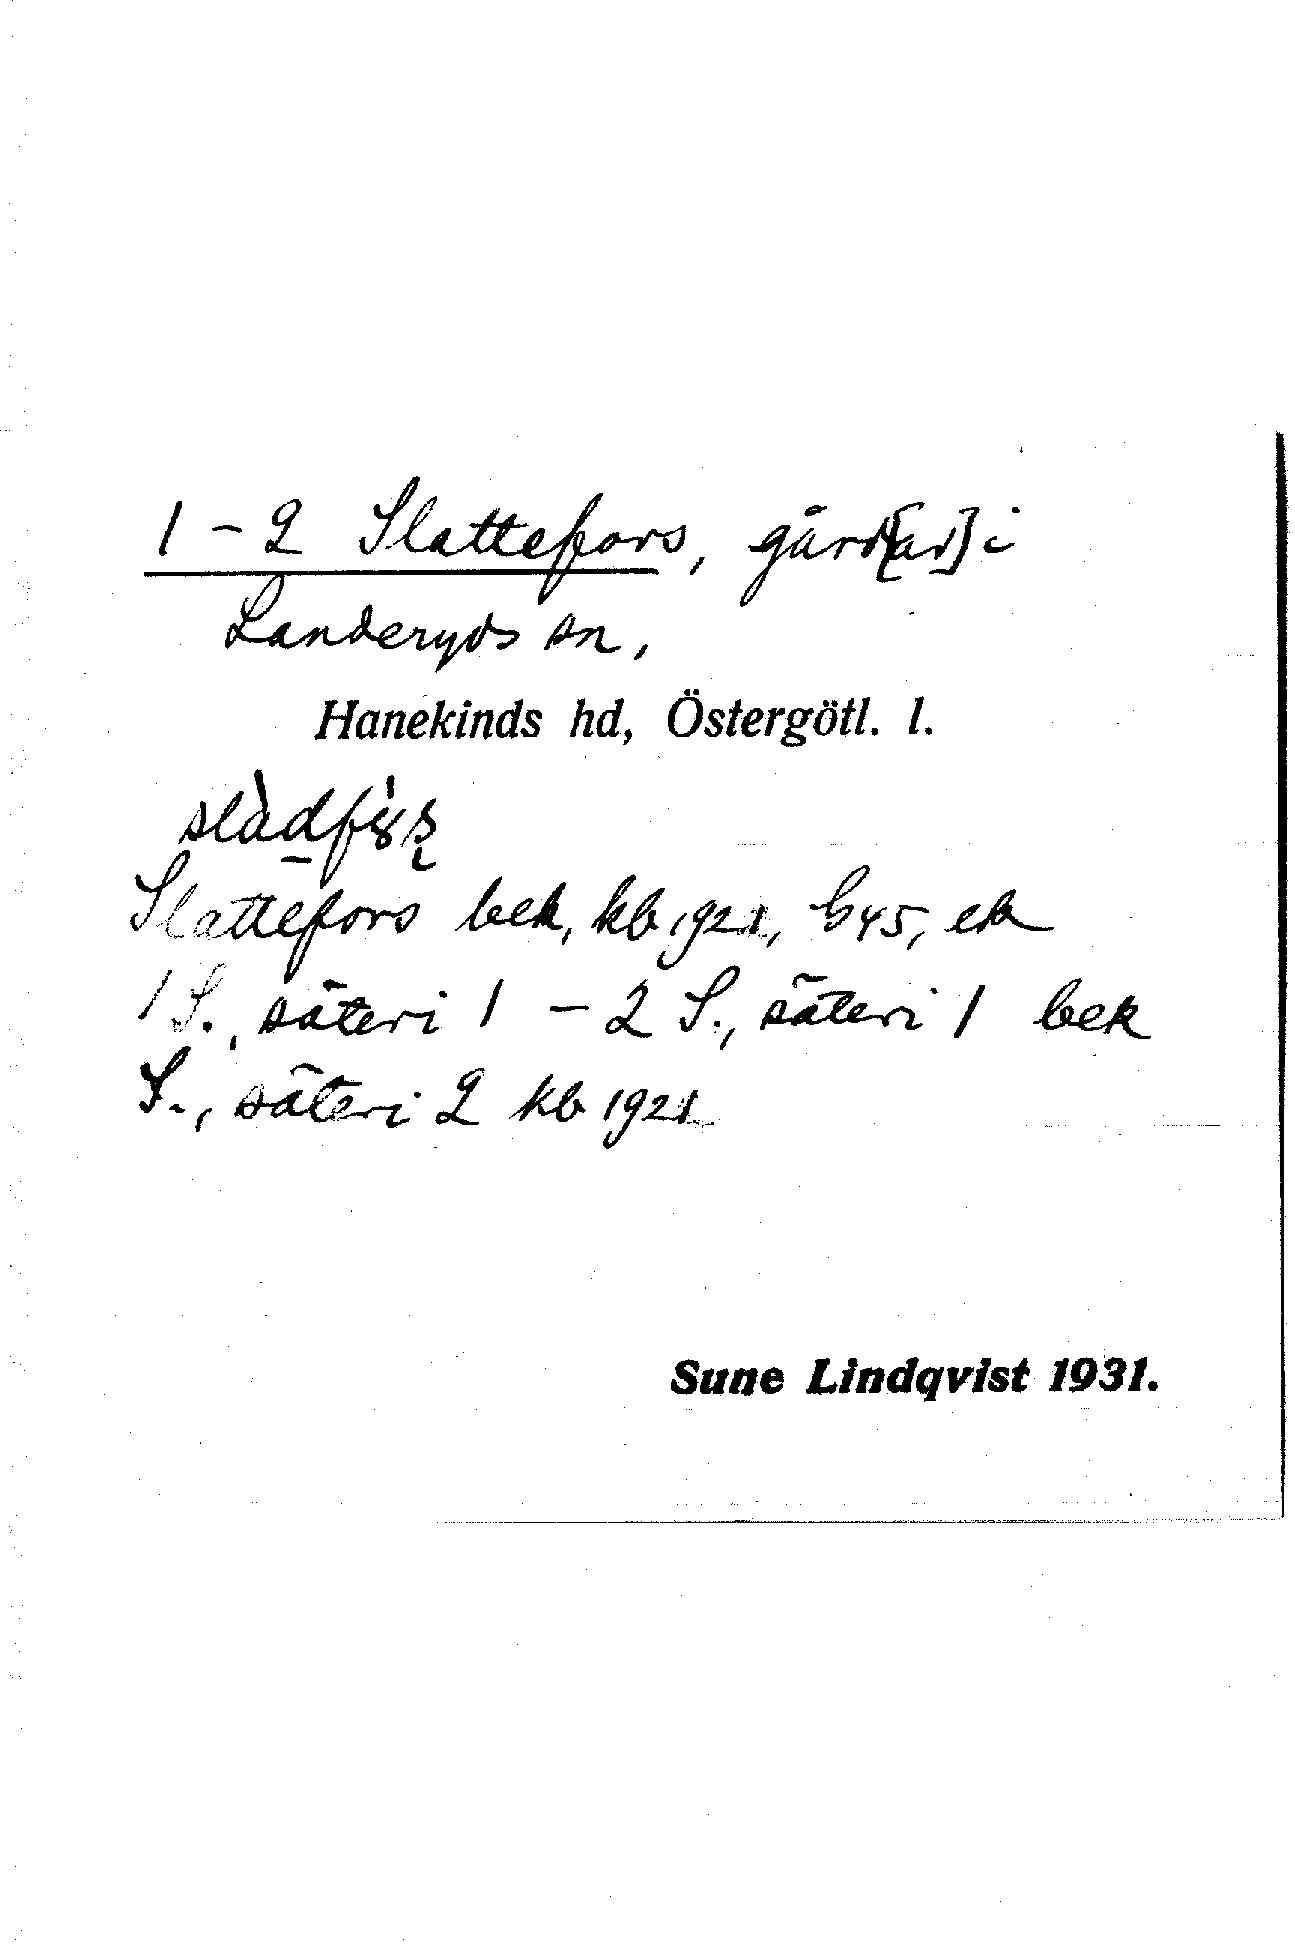 1 – 2 Slattefors, gård[ar] i
Landeryds sn,
Hanekinds hd, Östergötl. l.
Slattefors bek, kb 1921, b45, ek
1 S., säteri 1 – 2 S., säteri 1 bek
S., säteri 2 kb 1921
Sune Lindqvist 1931.